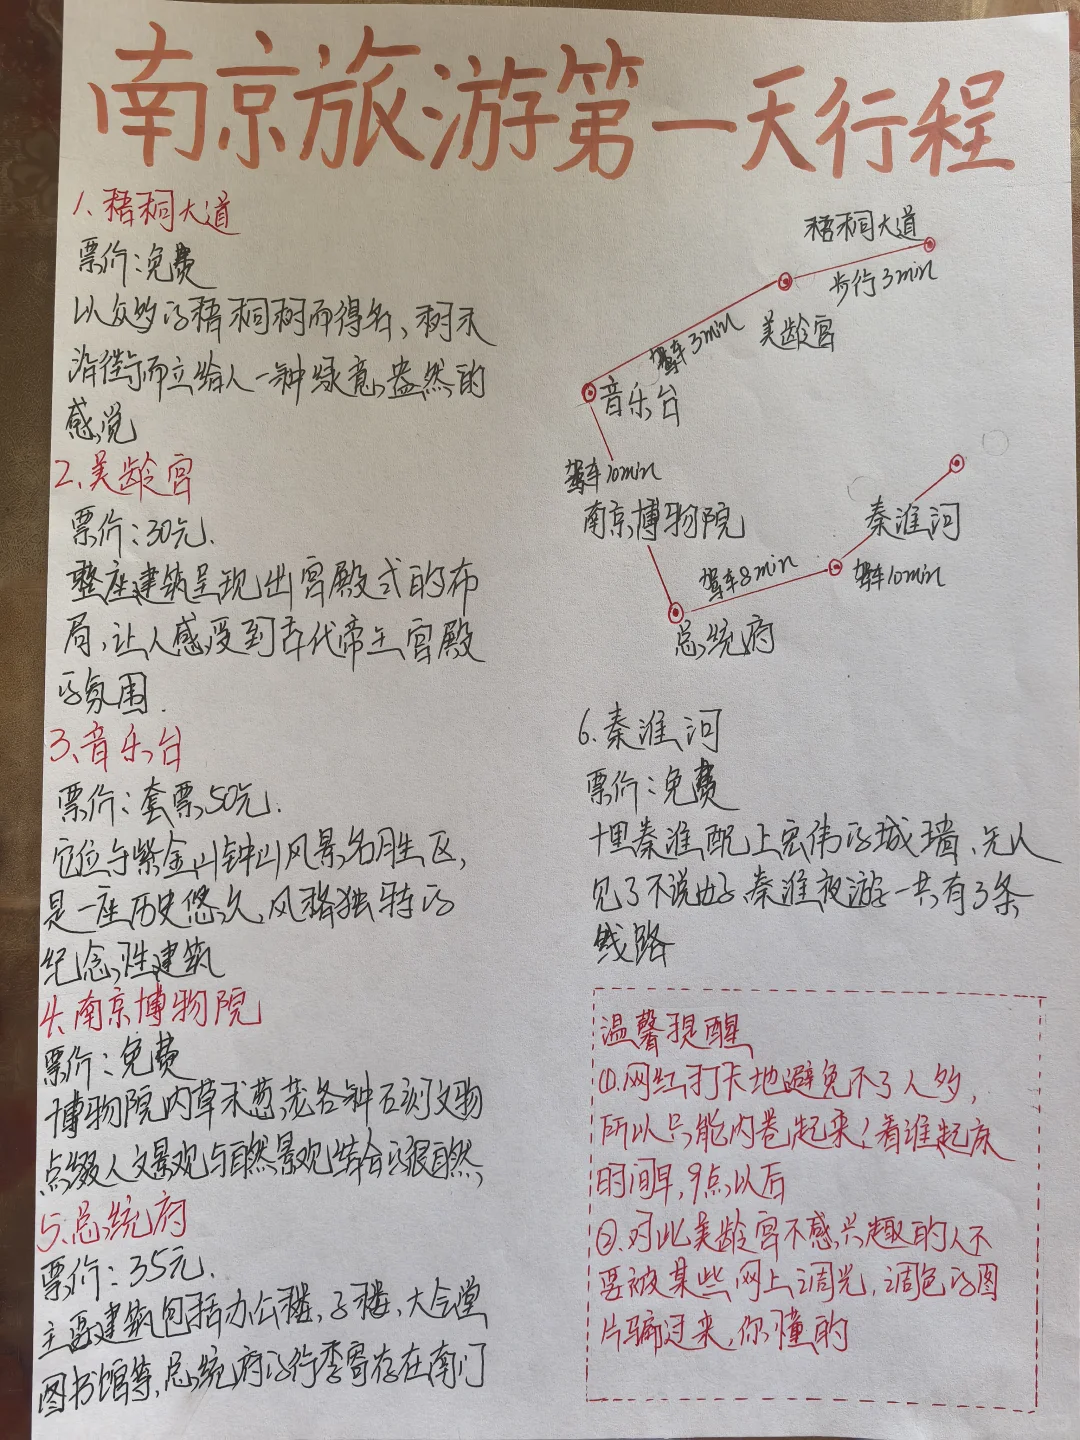 南京旅游第一天行程
1、梧桐大道
票价:免费
以众多的梧桐树而得名、树木
沿街而立给人一种绿意盎然的
感觉
2、美龄宫
票价:30元.
整座建筑呈现出宫殿式的布
局,让人感受到古代帝王宫殿
的氛围.
3、音乐台
票价:套票50元.
它位于紫金山钟山风景名胜区,
是一座历史悠久,风格独特的
纪念性建筑
4、南京博物院
票价:免费
博物院内草木葱茏各种石刻文物
点缀人文景观与自然景观结合的很自然
5、总统府
票价:35元.
主要建筑包括办公楼,子楼,大会堂
图书馆等,总统府的行李寄存在南门
梧桐大道
步行3min
美龄宫
驾车3min
音乐台
驾车10min
南京博物院
秦淮河
驾车8min
驾车10min
总统府
6、秦淮河
票价:免费
十里秦淮配上宏伟的城墙、无人
见了不说好,秦淮夜游一共有3条
线路
温馨提醒
①.网红打卡地避免不了人多,
所以只能内卷起来!看谁起床
时间早,9点以后
②.对此美龄宫不感兴趣的人不
要被某些网上调光,调色的图
片骗过来,你懂的